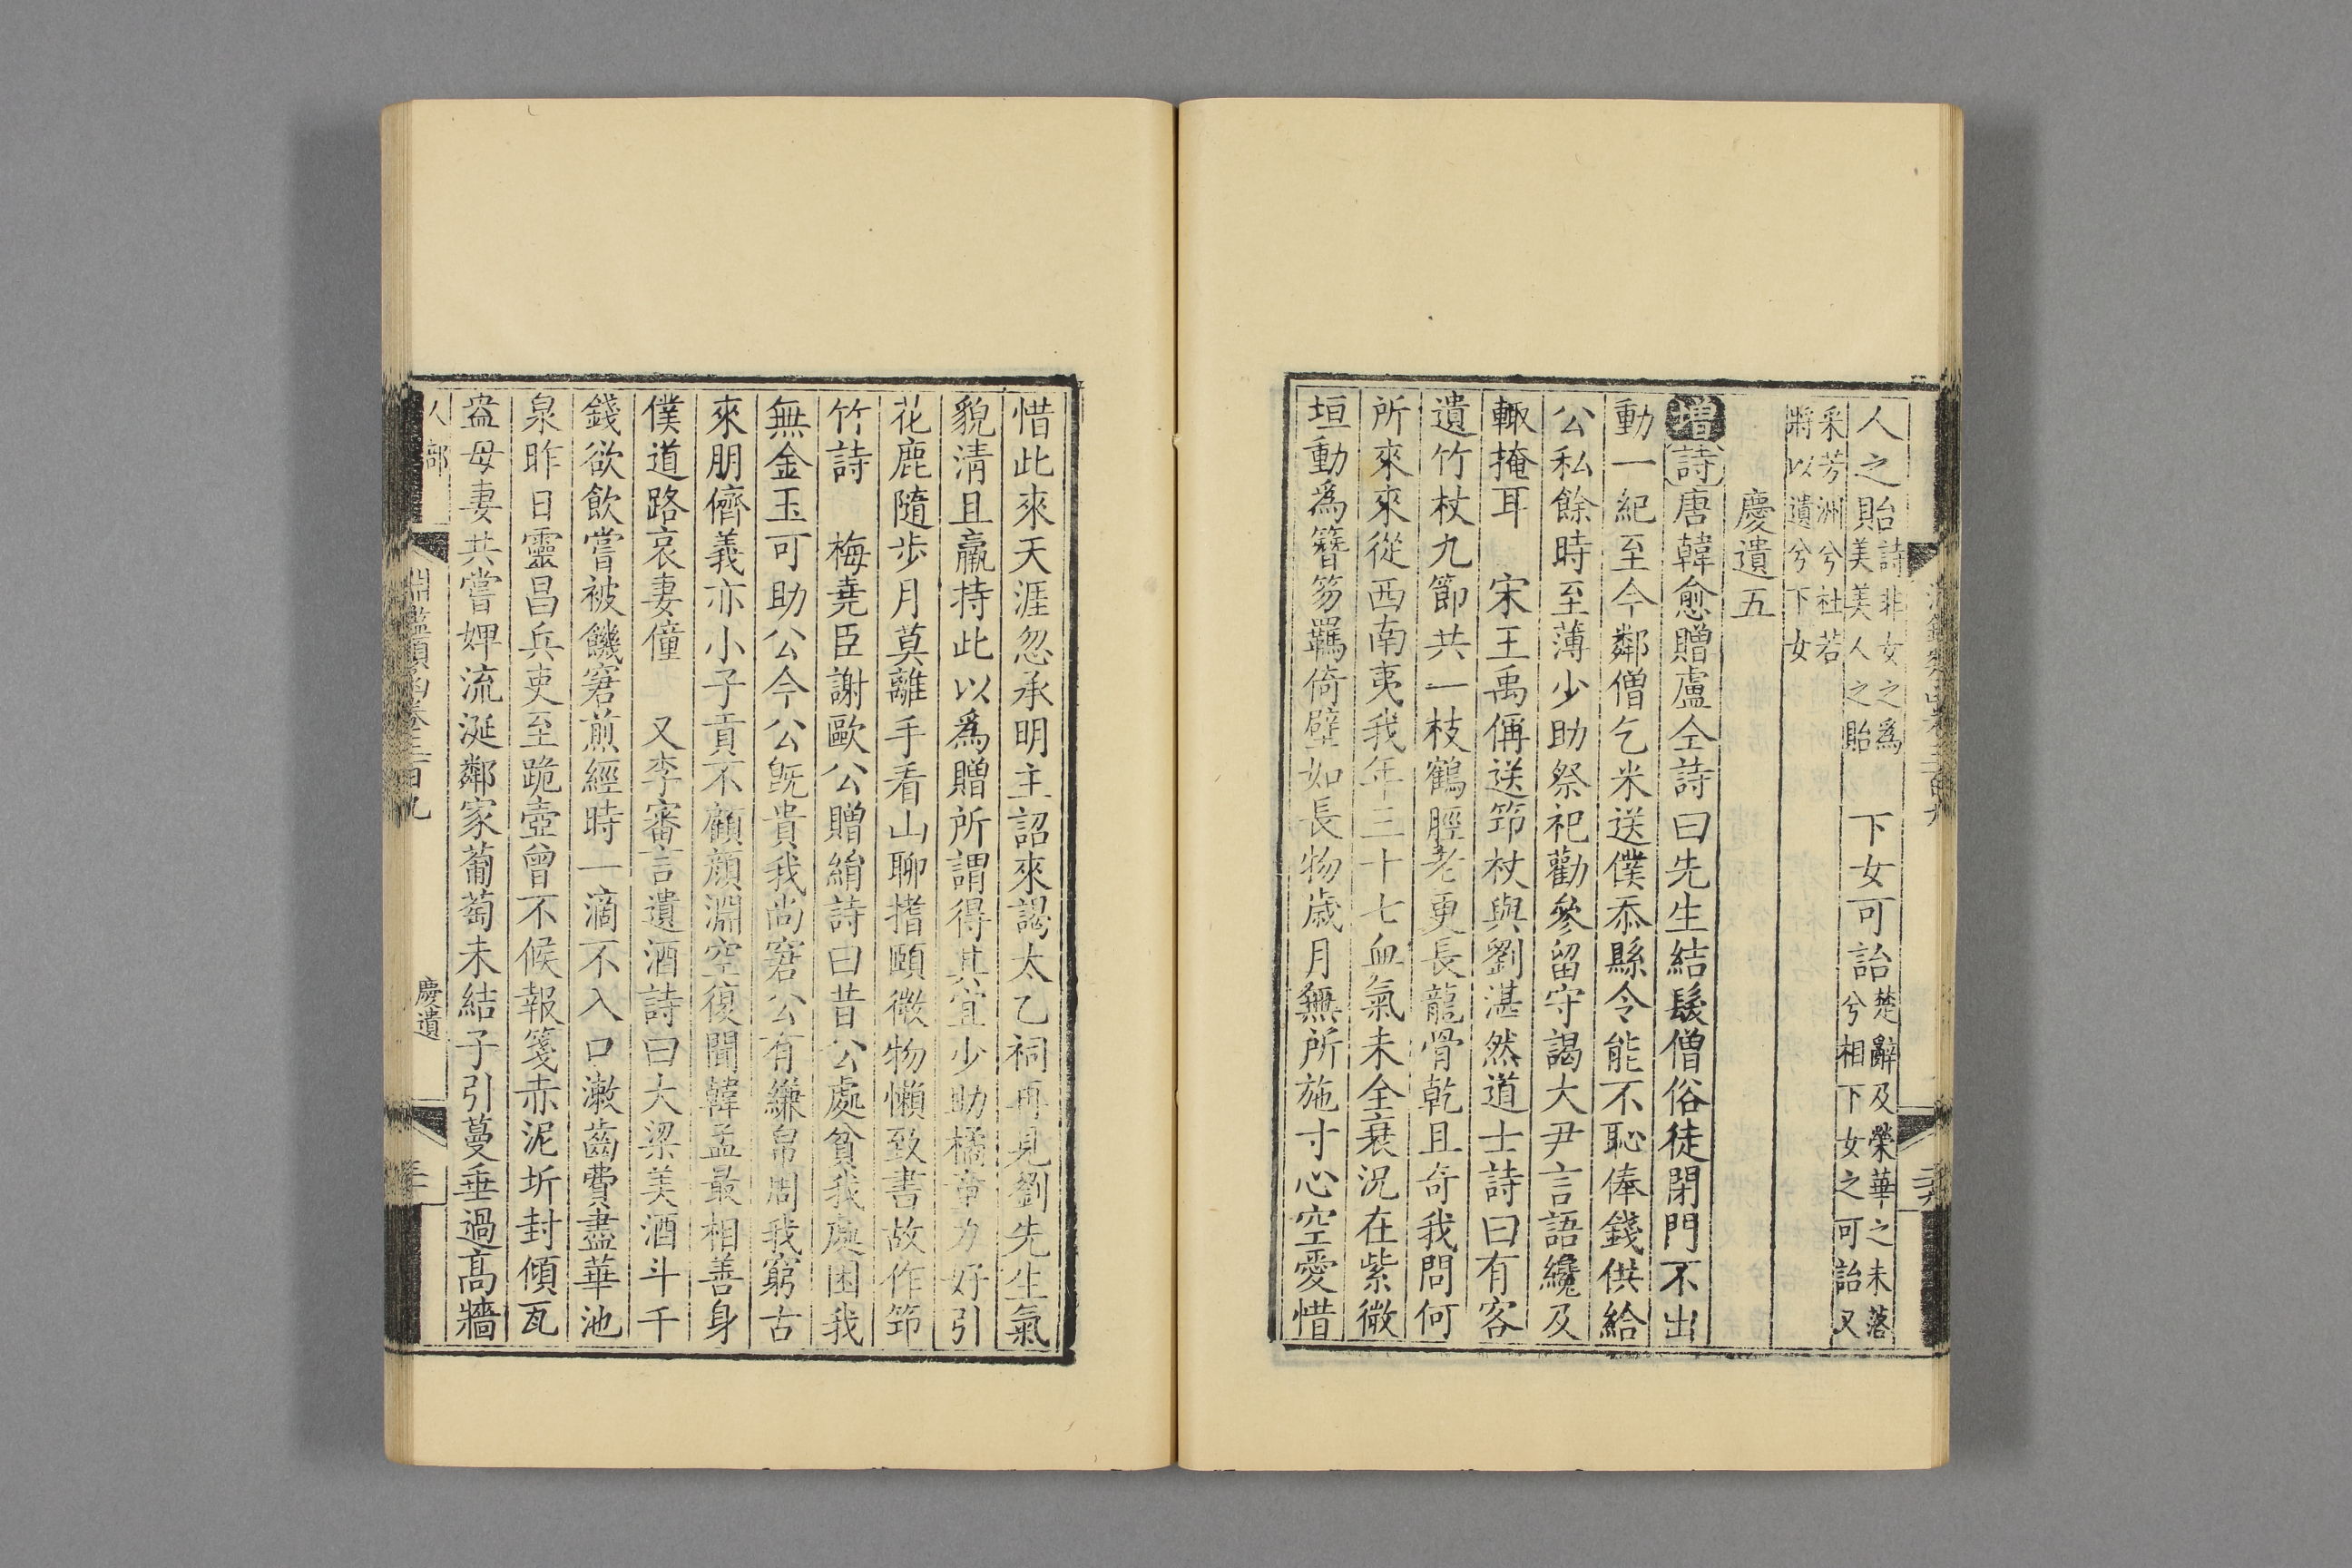 人之貽詩非女之爲美美人之貽　下女可詒楚辭及榮華之未落兮相下女之可詒又
采芳洲兮杜若將以遺兮下女
慶遺五
增詩唐韓愈贈盧仝詩曰先生結髮僧俗徒閉門不出
動一紀至今鄰僧乞米送僕忝縣令能不恥俸錢供給
公私餘時至薄少助祭祀勸參留守謁大尹言語纔及
輙掩耳　宋王禹偁送筇杖與劉湛然道士詩曰有客
遺竹杖九節共一枝鶴脛老更長龍骨乾且奇我問何
所來來從西南夷我年三十七血氣未全衰況在紫微
垣動爲簪笏羈倚壁如長物歲月無所施寸心空愛惜
惜此來天涯忽承明主詔來謁太乙祠再見劉先生氣
貌清且羸持此以爲贈所謂得其宜少助橘童力好引
花鹿隨步月莫離手看山聊搘頤微物懶致書故作筇
竹詩　梅堯臣謝歐公贈絹詩曰昔公處貧我處困我
無金玉可助公今公旣貴我尚窘公有縑帛周我窮古
來朋儕義亦小子貢不顧顏淵空復聞韓孟最相善身
僕道路哀妻僮　又李審言遺酒詩曰大梁美酒斗千
錢欲飲嘗被饑窘煎經時一滴不入口漱齒費盡華池
泉昨日靈昌兵吏至跪壺曾不候報箋赤泥坼封傾瓦
盎母妻共嘗婢流涎鄰家葡萄未結子引蔓垂過高牆
人部
淵鑑類函卷三百九
慶遺